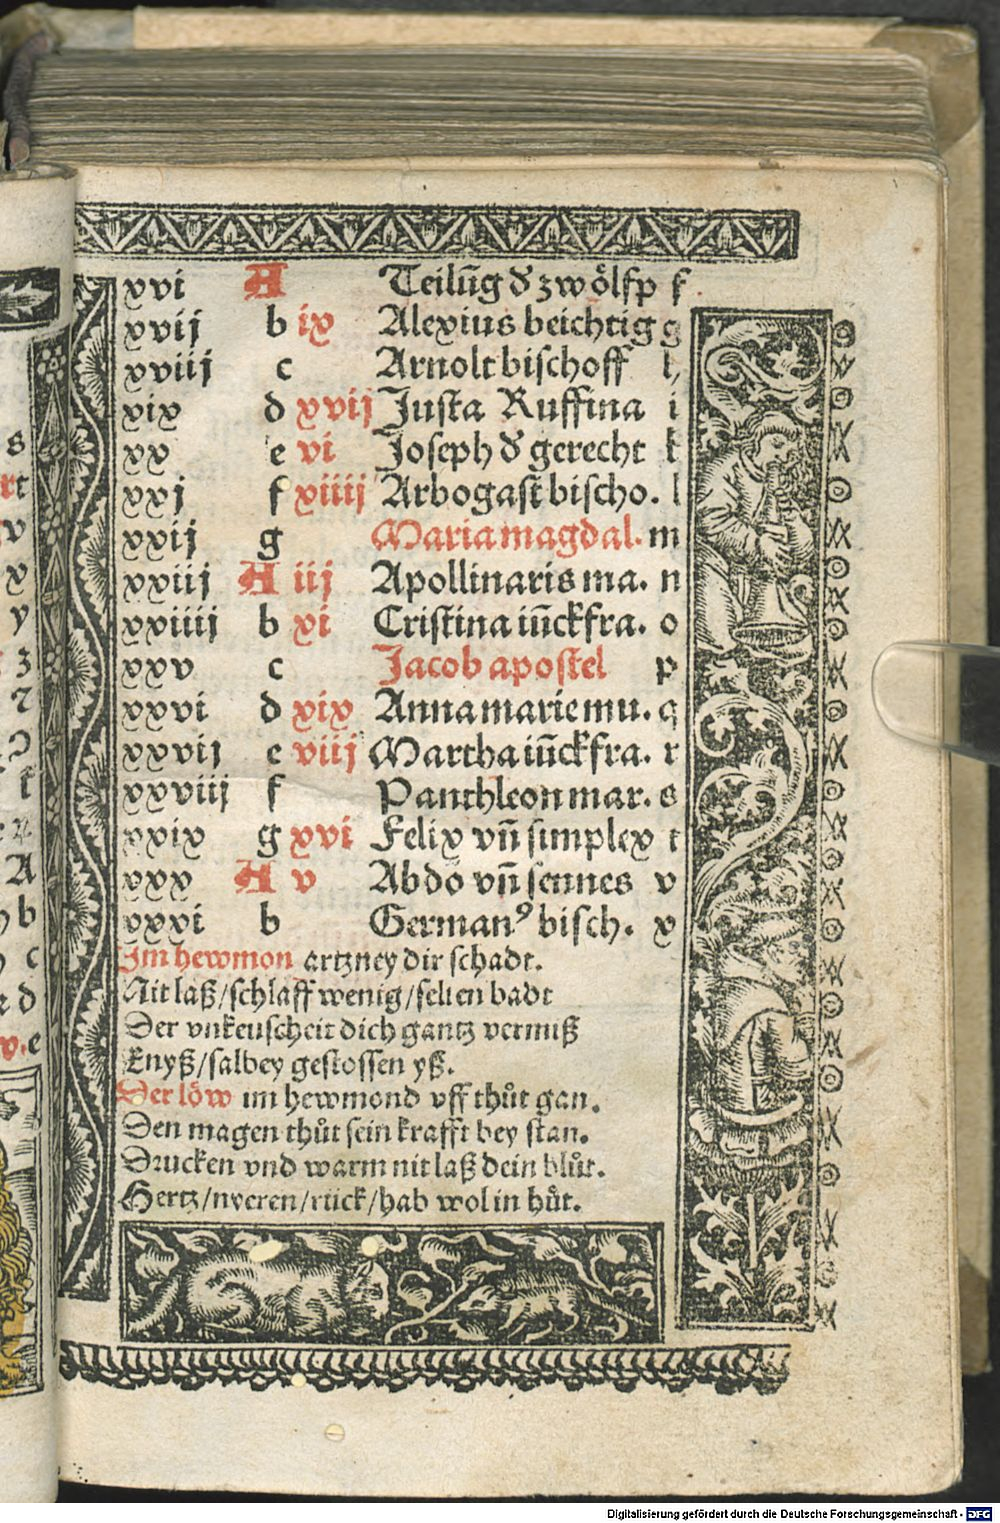 xvi A Teilūg d' zwölfp f
xvij b ix Alexius beichtig g
xviij c Arnolt bischoff h
xix d xvij Justa Ruffina i
xx e vi Joseph d' gerecht k
xxj f xiiij Arbogast bischo. l
xxij g Maria magdal. m
xxiij A iij Apollinaris ma. n
xxiiij b xi Cristina iūckfra. o
xxv c Jacob apostel p
xxvi d xix Anna marie mu. q
xxvij e viij Martha iūckfra. r
xxviij f Panthleon mar. s
xxix g xvi Felix vn̄ simplex t
xxx A v Abdō vn̄ sennes v
xxxi b Germanꝰ bisch. x
Im hewmon artzney dir schadt.
Nit laß/schlaff wenig/selten badt
Der vnkeuscheit dich gantz vermiß
Enyß/salbey gestossen yß.
Der löw im hewmond vff thůt gan.
Den magen thůt sein krafft bey stan.
Drucken vnd warm nit laß dein blůt.
Hertz/nyeren/rück/hab wol in hůt.
Digitalisierung gefördert durch die Deutsche Forschungsgemeinschaft - DFG